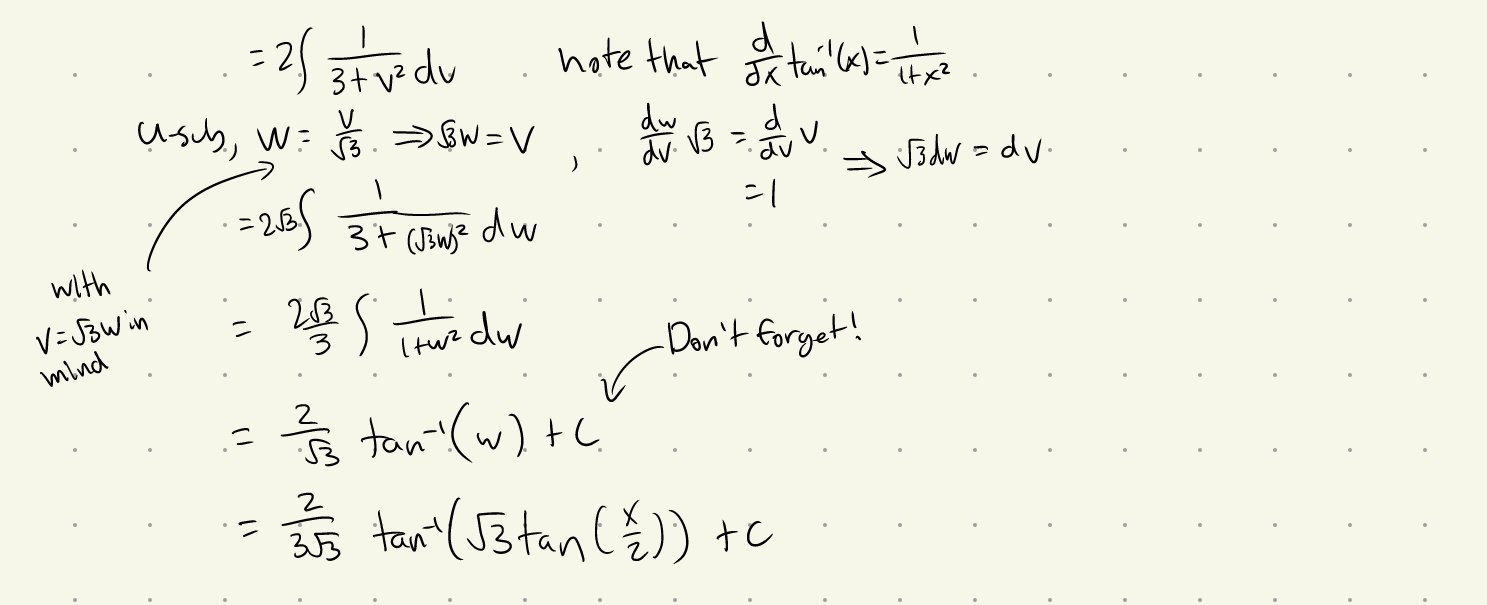 = 2∫ 1/(3+v²) dv note that d/dx tan⁻¹(x) = 1/(1+x²)
u-sub, w = v/√3 ⇒ √3w = v , dw/dv √3 = d/dv v ⇒ √3dw = dv
= 1
= 2√3∫ 1/(3+(√3w)²) dw
with
v=√3w in
mind
= 2√3/3 ∫ 1/(1+w²) dw
Don't forget!
= 2/√3 tan⁻¹(w) + C
= 2/(3√3) tan⁻¹(√3tan(x/2)) + C